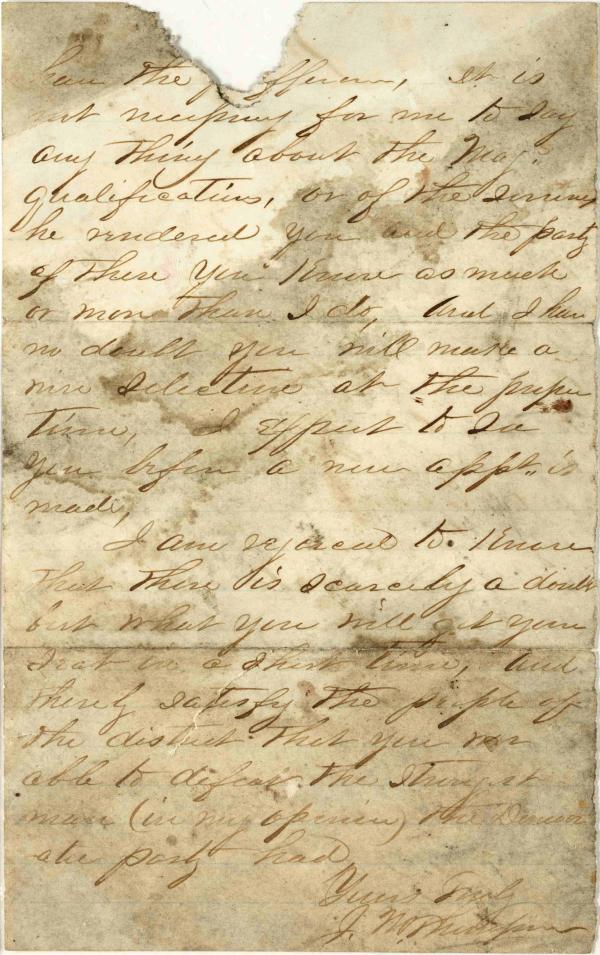 have the
It is
not necessary for me to say
any thing about the Maj.
qualifications, or of the services
he rendered you and the party
of these you know as much
or more than I do, and I have
no doubt you will make a
wise selection at the proper
time, I expect to see
you before a new appt. is
made,
I am rejoiced to know
that there is scarcely a doubt
but what you will get your
seat in a short time, and
thereby satisfy the people of
the district that you were
able to defeat the strongest
man (in my opinion) the Democr
atic party had
Yours Truly
J.